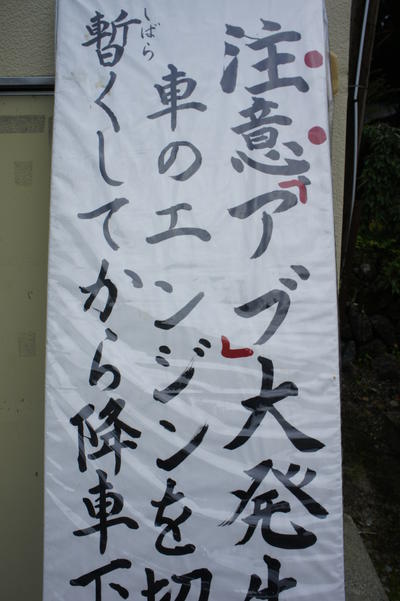 注意「アブ」大発生
車のエンジンを切
暫くしてから降車下
しばら